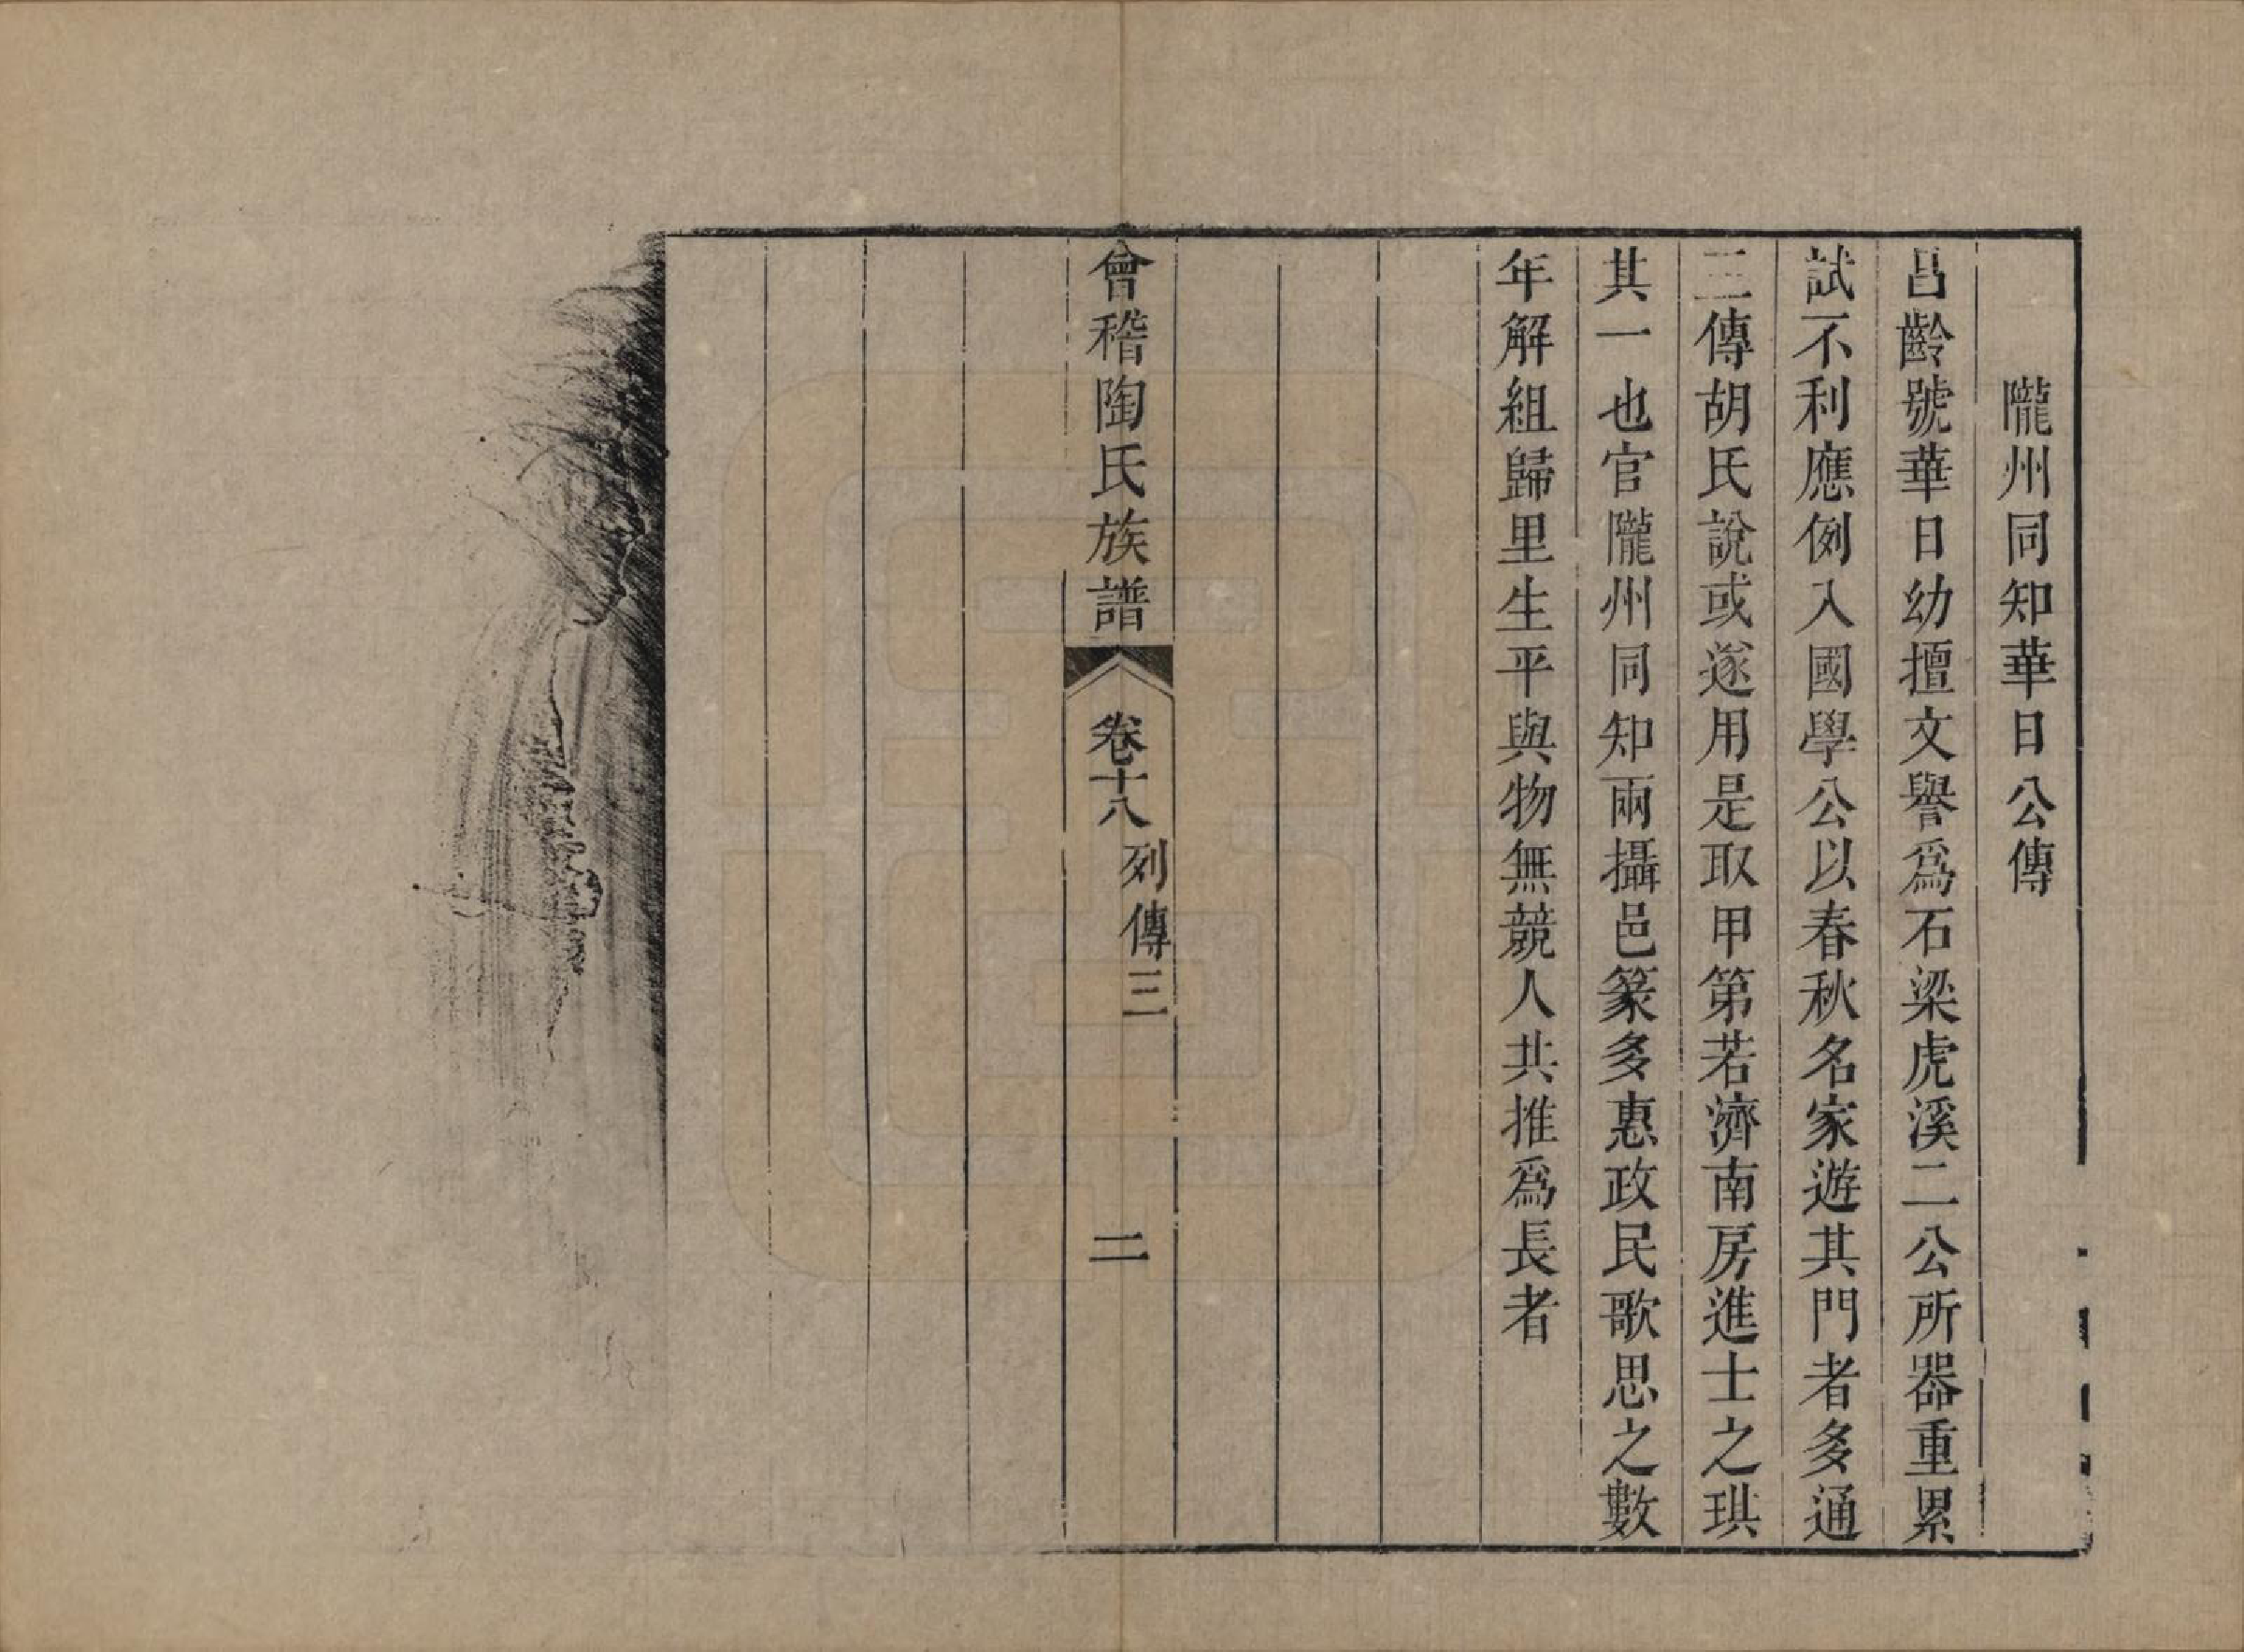 隴州同知華日公傳
昌齡號華日幼擅文譽爲石梁虎溪二公所器重累
試不利應例入國學公以春秋名家遊其門者多通
三傳胡氏說或遂用是取甲第若濟南房進士之琪
其一也官隴州同知兩攝邑篆多惠政民歌思之數
年解組歸里生平與物無競人共推爲長者
會稽陶氏族譜 卷十八 列傳三 二